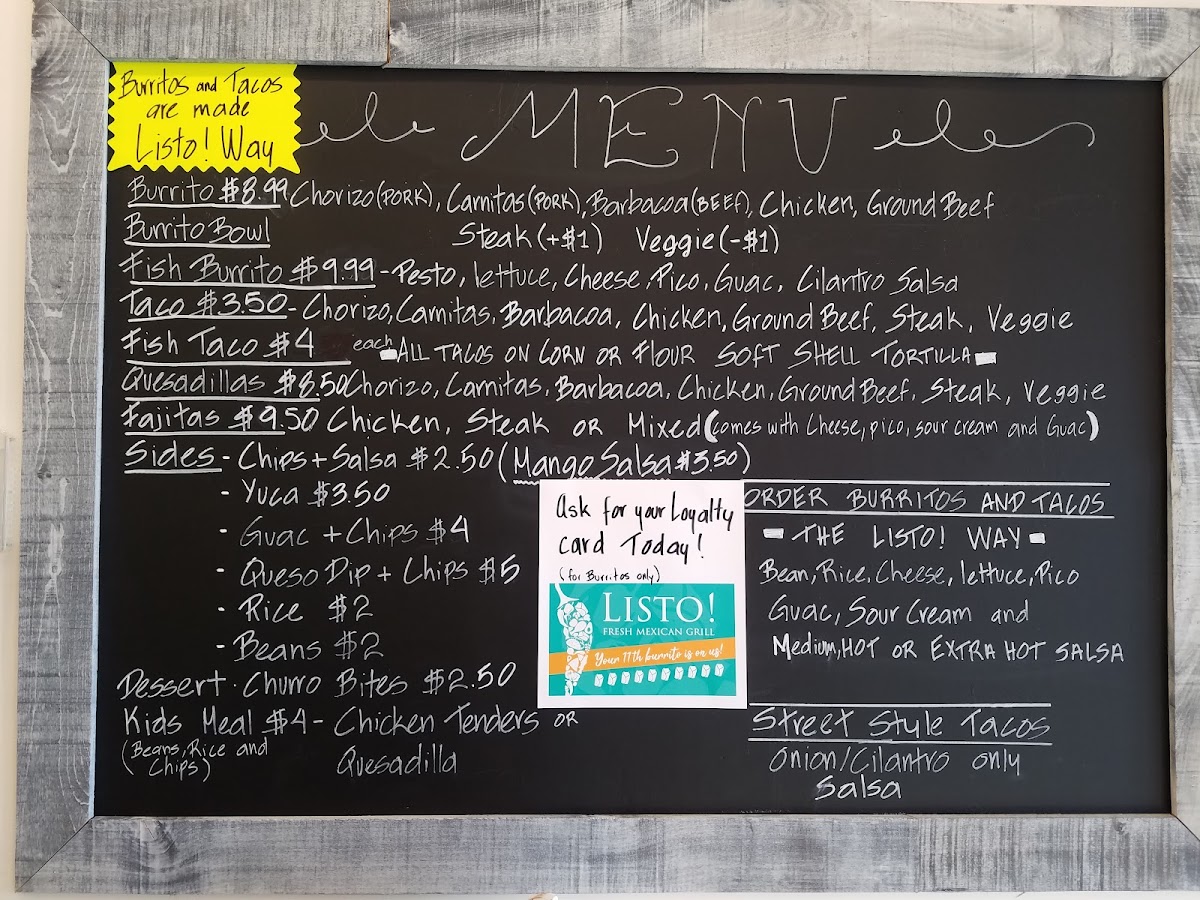 Burritos and Tacos
are made
Listo! Way
MENU
Burrito $8.99 Chorizo(PORK), Carnitas(PORK), Barbacoa(BEEF), Chicken, Ground Beef
Burrito Bowl Steak(+$1) Veggie(-$1)
Fish Burrito $9.99 - Pesto, lettuce, Cheese, Pico, Guac, Cilantro Salsa
Taco $3.50 - Chorizo, Carnitas, Barbacoa, Chicken, Ground Beef, Steak, Veggie
Fish Taco $4 each - ALL TACOS ON CORN OR FLOUR SOFT SHELL TORTILLA -
Quesadillas $8.50 Chorizo, Carnitas, Barbacoa, Chicken, Ground Beef, Steak, Veggie
Fajitas $9.50 Chicken, Steak OR Mixed (comes with Cheese, pico, sour cream and Guac)
Sides - Chips + Salsa $2.50 (Mango Salsa $3.50)
- Yuca $3.50
- Guac + Chips $4
- Queso Dip + Chips $5
- Rice $2
- Beans $2
Dessert - Churro Bites $2.50
Kids Meal $4 - Chicken Tenders OR
(Beans, Rice and Quesadilla
Chips)
Ask for your Loyalty
card Today!
(for Burritos only)
LISTO!
FRESH MEXICAN GRILL
Your 11th burrito is on us!
ORDER BURRITOS AND TACOS
- THE LISTO! WAY -
Bean, Rice, Cheese, lettuce, Pico
Guac, Sour Cream and
Medium, HOT OR EXTRA HOT SALSA
Street Style Tacos
Onion/Cilantro only
Salsa